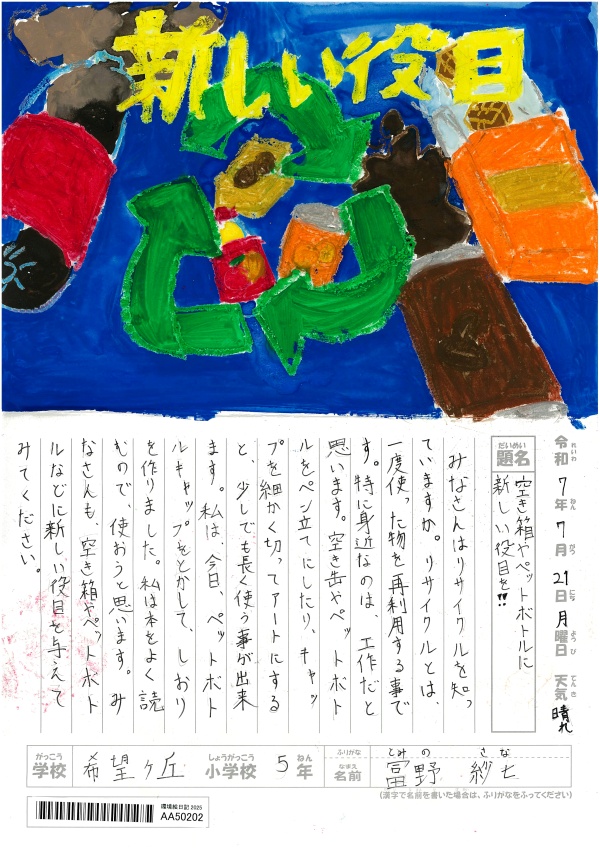 新しい役目
令和7年7月21日月曜日 天気 晴れ
れいわ ねん がつ にち ようび てんき
だいめい
題名
空き箱やペットボトルに
新しい役目を!!
みなさんはリサイクルを知っ
ていますか。リサイクルとは、
一度使った物を再利用する事で
す。特に身近なのは、工作だと
思います。空き缶やペットボト
ルをペン立てにしたり、キャッ
プを細かく切ってアートにする
と、少しでも長く使う事が出来
ます。私は、今日、ペットボト
ルキャップをとかして、しおり
を作りました。私は本をよく読
むもので、使おうと思います。み
なさんも、空き箱やペットボト
ルなどに新しい役目を与えて
みてください。
がっこう
学校
希望ヶ丘
しょうがっこう
小学校
5
ねん
年
ふりがな
とみの さな
なまえ
名前
冨野 紗七
(漢字で名前を書いた場合は、ふりがなをふってください)
環境絵日記2025
AA50202